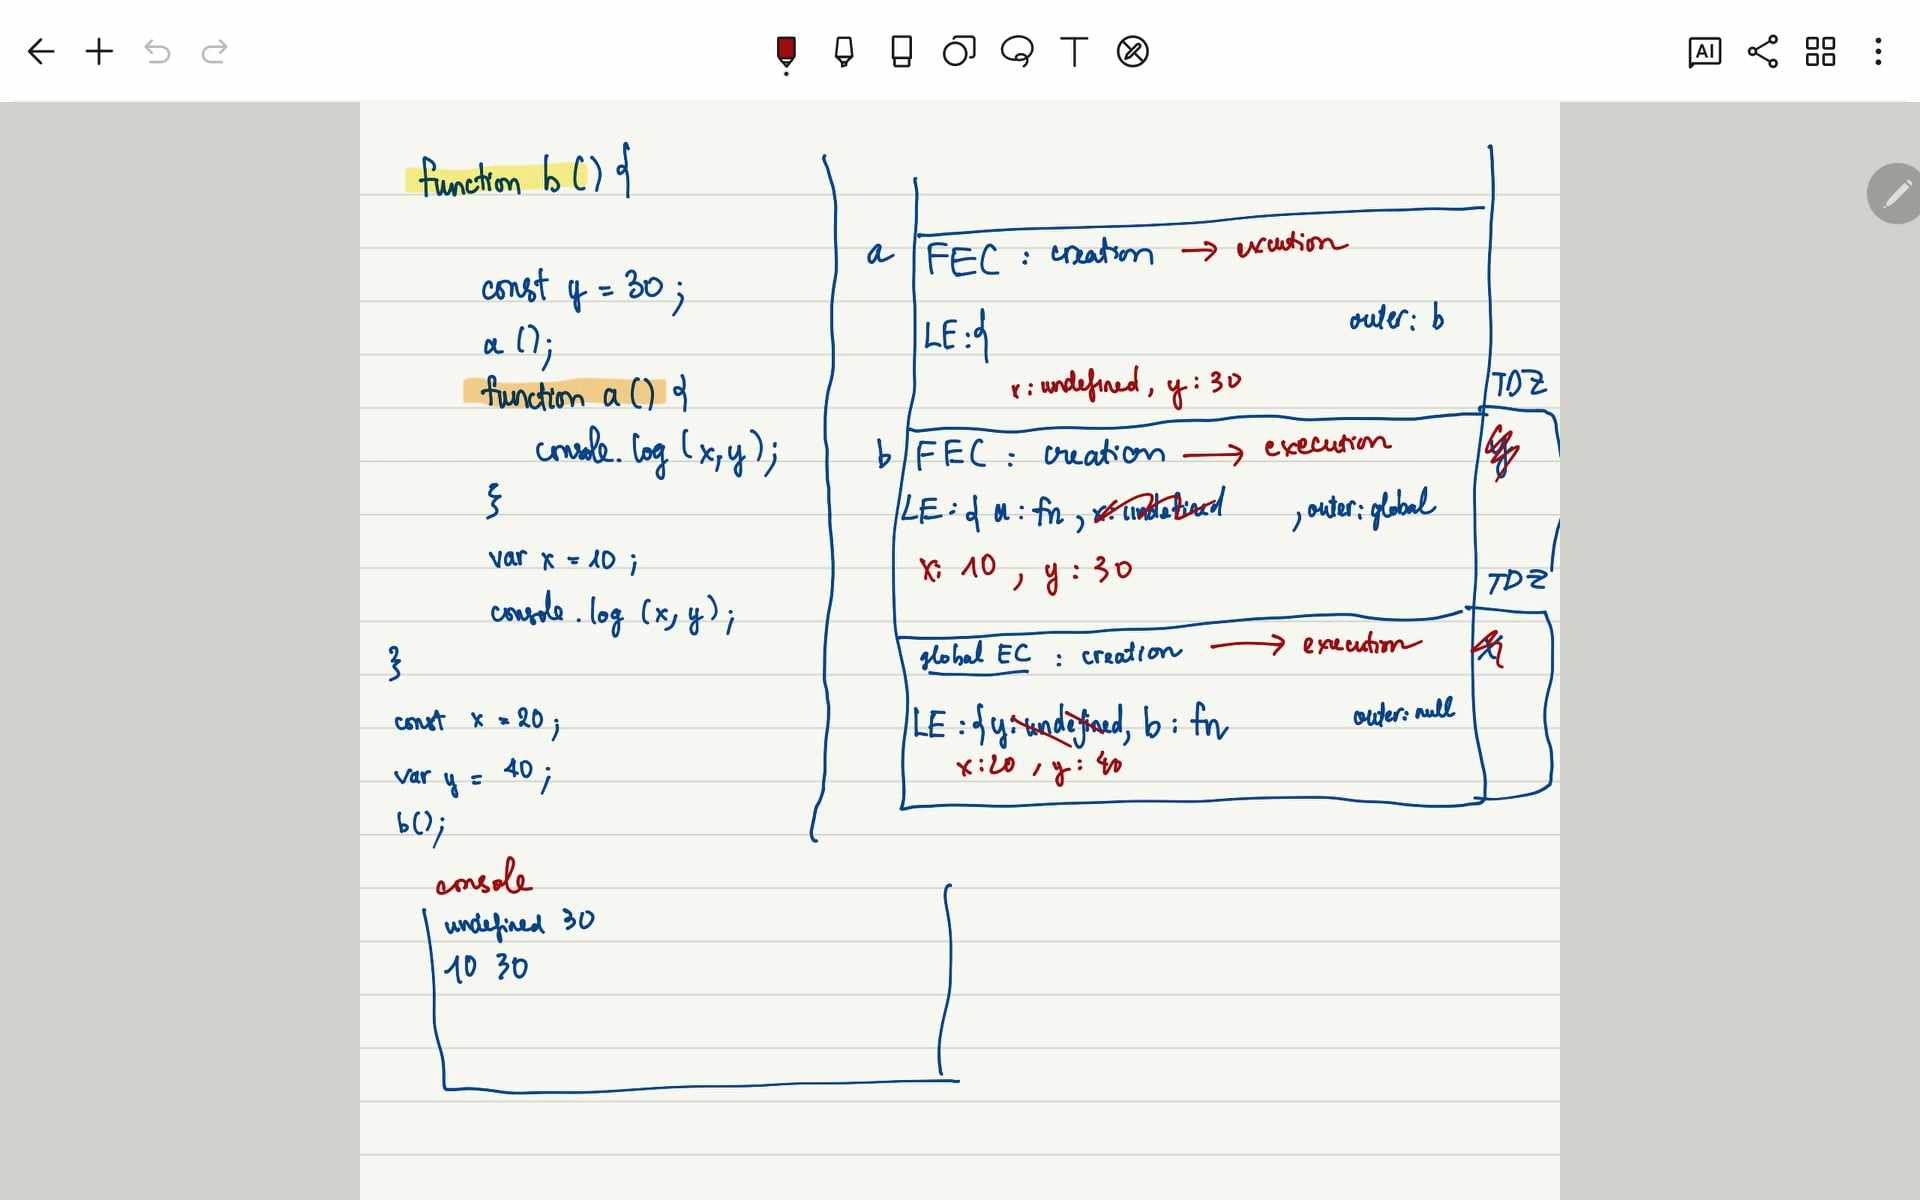 AI
function b() {
const y = 30;
a();
function a() {
console.log(x,y);
}
var x = 10;
console.log(x, y);
}
const x = 20;
var y = 40;
b();
console
undefined 30
10 30
a FEC : creation → execution
LE:{ outer: b
x: undefined, y: 30
TDZ
b FEC : creation → execution y
LE: { a: fn, x: undefined , outer: global
x: 10 , y: 30
TDZ
global EC : creation → execution x
LE: {y: undefined, b: fn outer: null
x:20 , y: 40